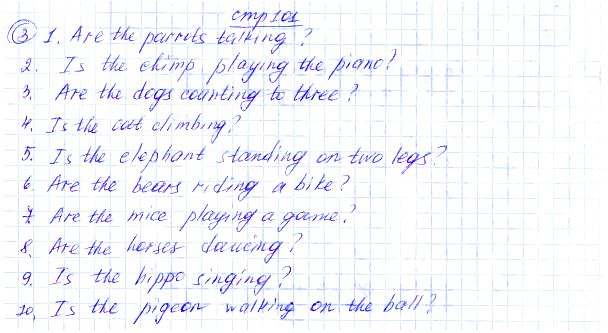 стр 101
③ 1. Are the parrots talking?
2. Is the chimp playing the piano?
3. Are the dogs counting to three?
4. Is the cat climbing?
5. Is the elephant standing on two legs?
6. Are the bears riding a bike?
7. Are the mice playing a game?
8. Are the horses dancing?
9. Is the hippo singing?
10. Is the pigeon walking on the ball?